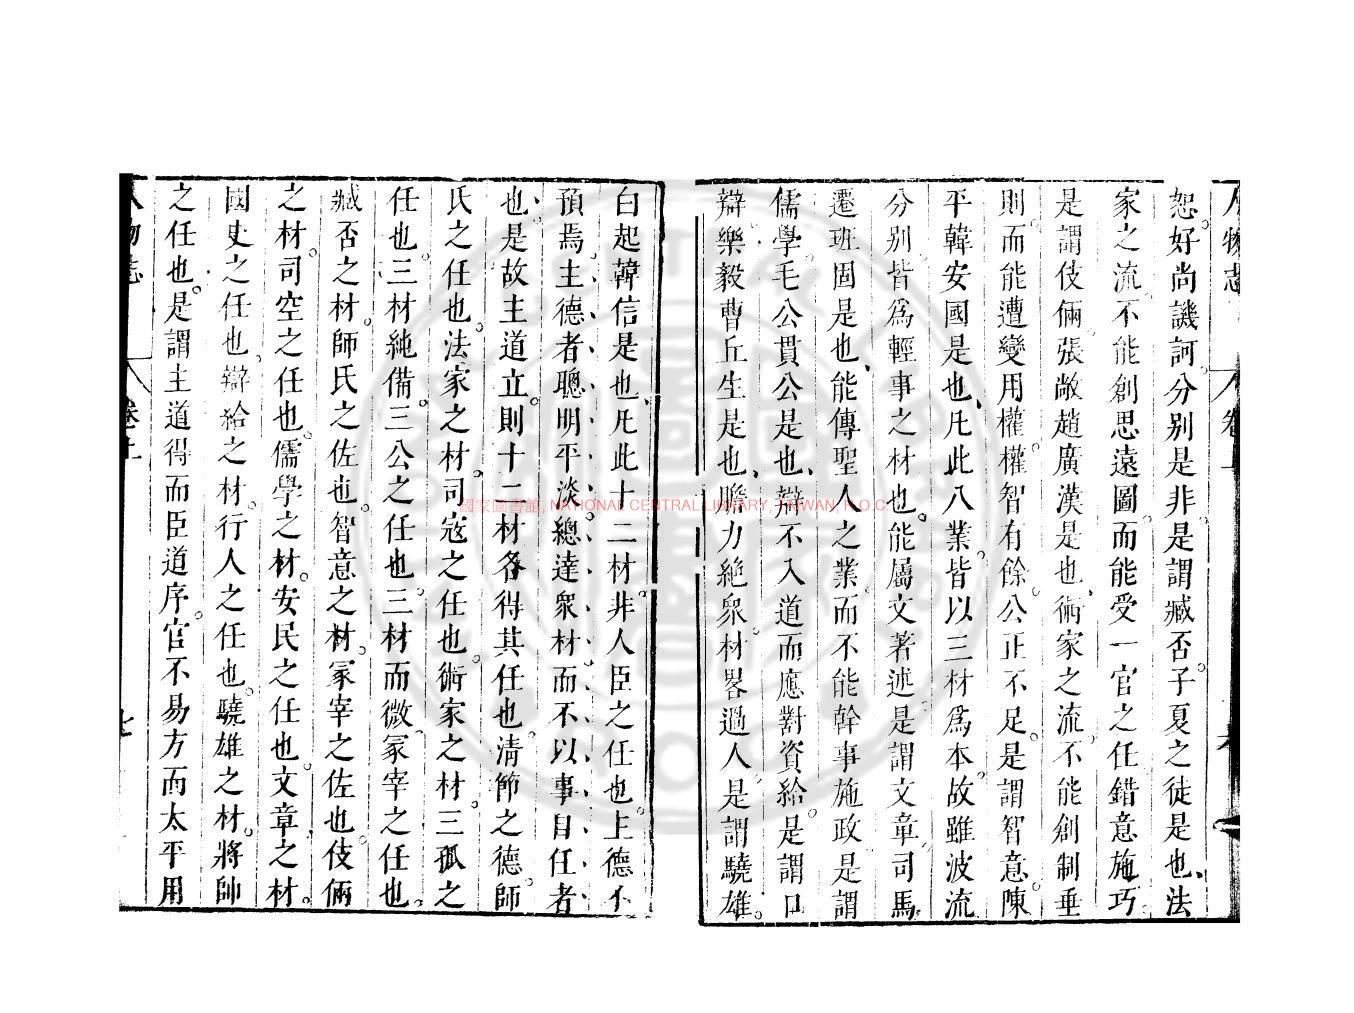 人物志 卷上
恕。好尚譏訶。分別是非。是謂臧否。子夏之徒是也。法
家之流。不能創思遠圖。而能受一官之任。錯意施巧。
是謂伎倆。張敞趙廣漢是也。術家之流。不能創制垂
則。而能遭變用權。權智有餘。公正不足。是謂智意。陳
平韓安國是也。凡此八業。皆以三材爲本。故雖波流
分別。皆爲輕事之材也。能屬文著述。是謂文章。司馬
遷班固是也。能傳聖人之業。而不能幹事施政。是謂
儒學。毛公貫公是也。辯不入道。而應對資給。是謂口
辯。樂毅曹丘生是也。膽力絶衆。材畧過人。是謂驍雄。
白起韓信是也。凡此十二材。非人臣之任也。主德不
預焉。主德者。聰明平淡。總達衆材。而不以事自任者
也。是故主道立。則十二材各得其任也。清節之德。師
氏之任也。法家之材。司寇之任也。術家之材。三孤之
任也。三材純備。三公之任也。三材而微。冢宰之任也。
臧否之材。師氏之佐也。智意之材。冢宰之佐也。伎倆
之材。司空之任也。儒學之材。安民之任也。文章之材。
國史之任也。辯給之材。行人之任也。驍雄之材。將帥
之任也。是謂主道得而臣道序。官不易方。而太平用
人物志 卷上 七
國家圖書館, NATIONAL CENTRAL LIBRARY, TAIWAN, R.O.C.